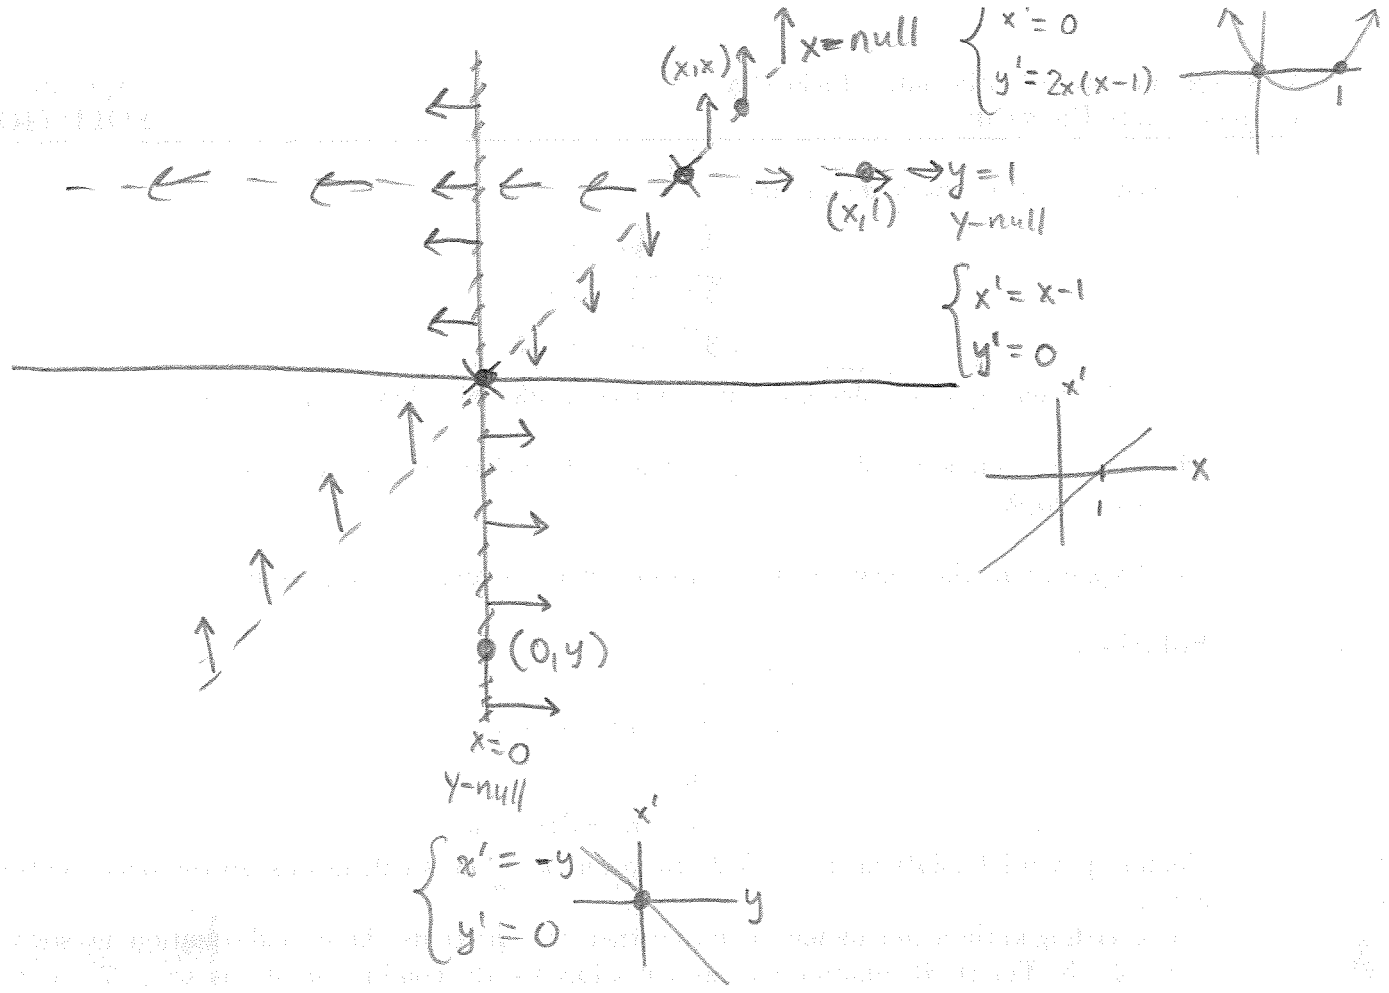 (x,x)
x=null
x'=0
y'=2x(x-1)
1
y=1
(x,1)
y-null
x'=x-1
y'=0
x'
x
1
(0,y)
x=0
y-null
x'
x'=-y
y
y'=0